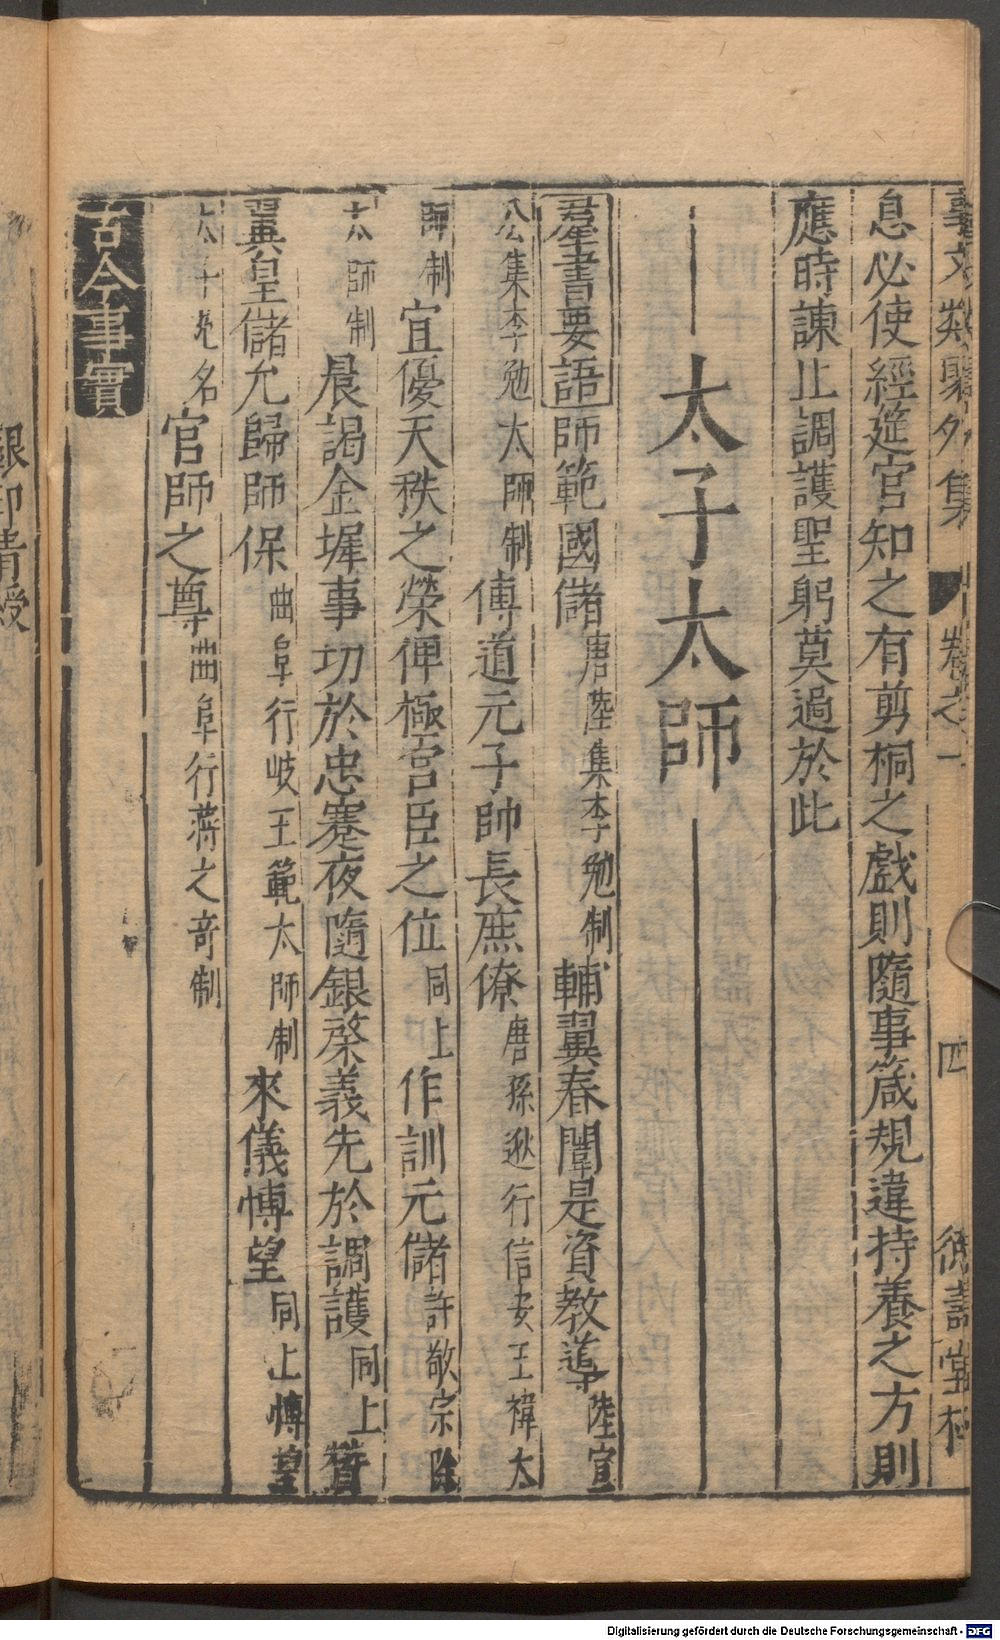 事文類聚外集 卷之一 四 德壽堂梓
息必使經筵官知之有剪桐之戲則隨事箴規違持養之方則
應時諫止調護聖躬莫過於此
太子太師
羣書要語師範國儲唐陸集李勉制輔翼春闈是資教導陸宣
公集李勉太師制傅道元子帥長庶僚唐孫逖行信安王褘太
師制宜優天秩之榮俾極宮臣之位同上作訓元儲許敬宗除
太師制晨謁金墀事切於忠蹇夜隨銀棨義先於調護同上贊
翼皇儲允歸師保曲阜行岐王範太師制來儀博望同上博望
太子苑名官師之尊曲阜行蔣之奇制
古今事實
銀印青綬
Digitalisierung gefördert durch die Deutsche Forschungsgemeinschaft - DFG